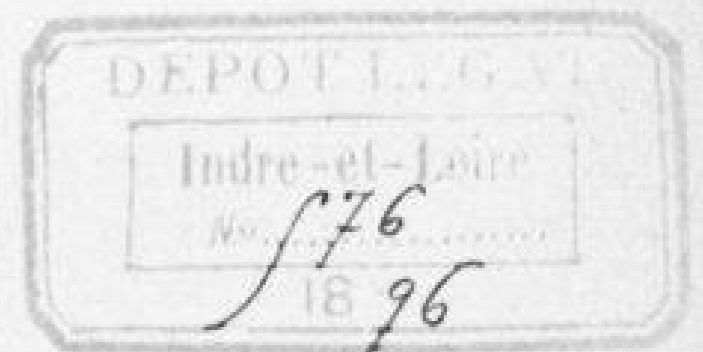 DEPOT LEGAL
Indre-et-Loire
No. 576
18 96